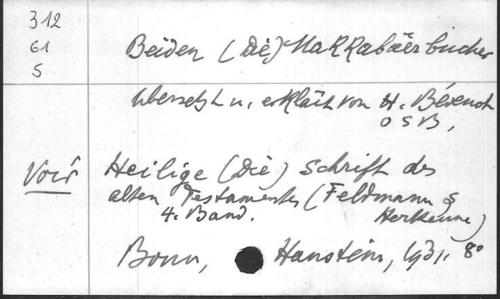 312
61
5
Beiden (Die) Makkabäerbücher
übersetzt u. erklärt von H. Bévenot
OSB,
Voir Heilige (Die) Schrift des
alten Testamentes (Feldmann &
4. Band. Herkenne)
Bonn, Hanstein, 1931. 8°